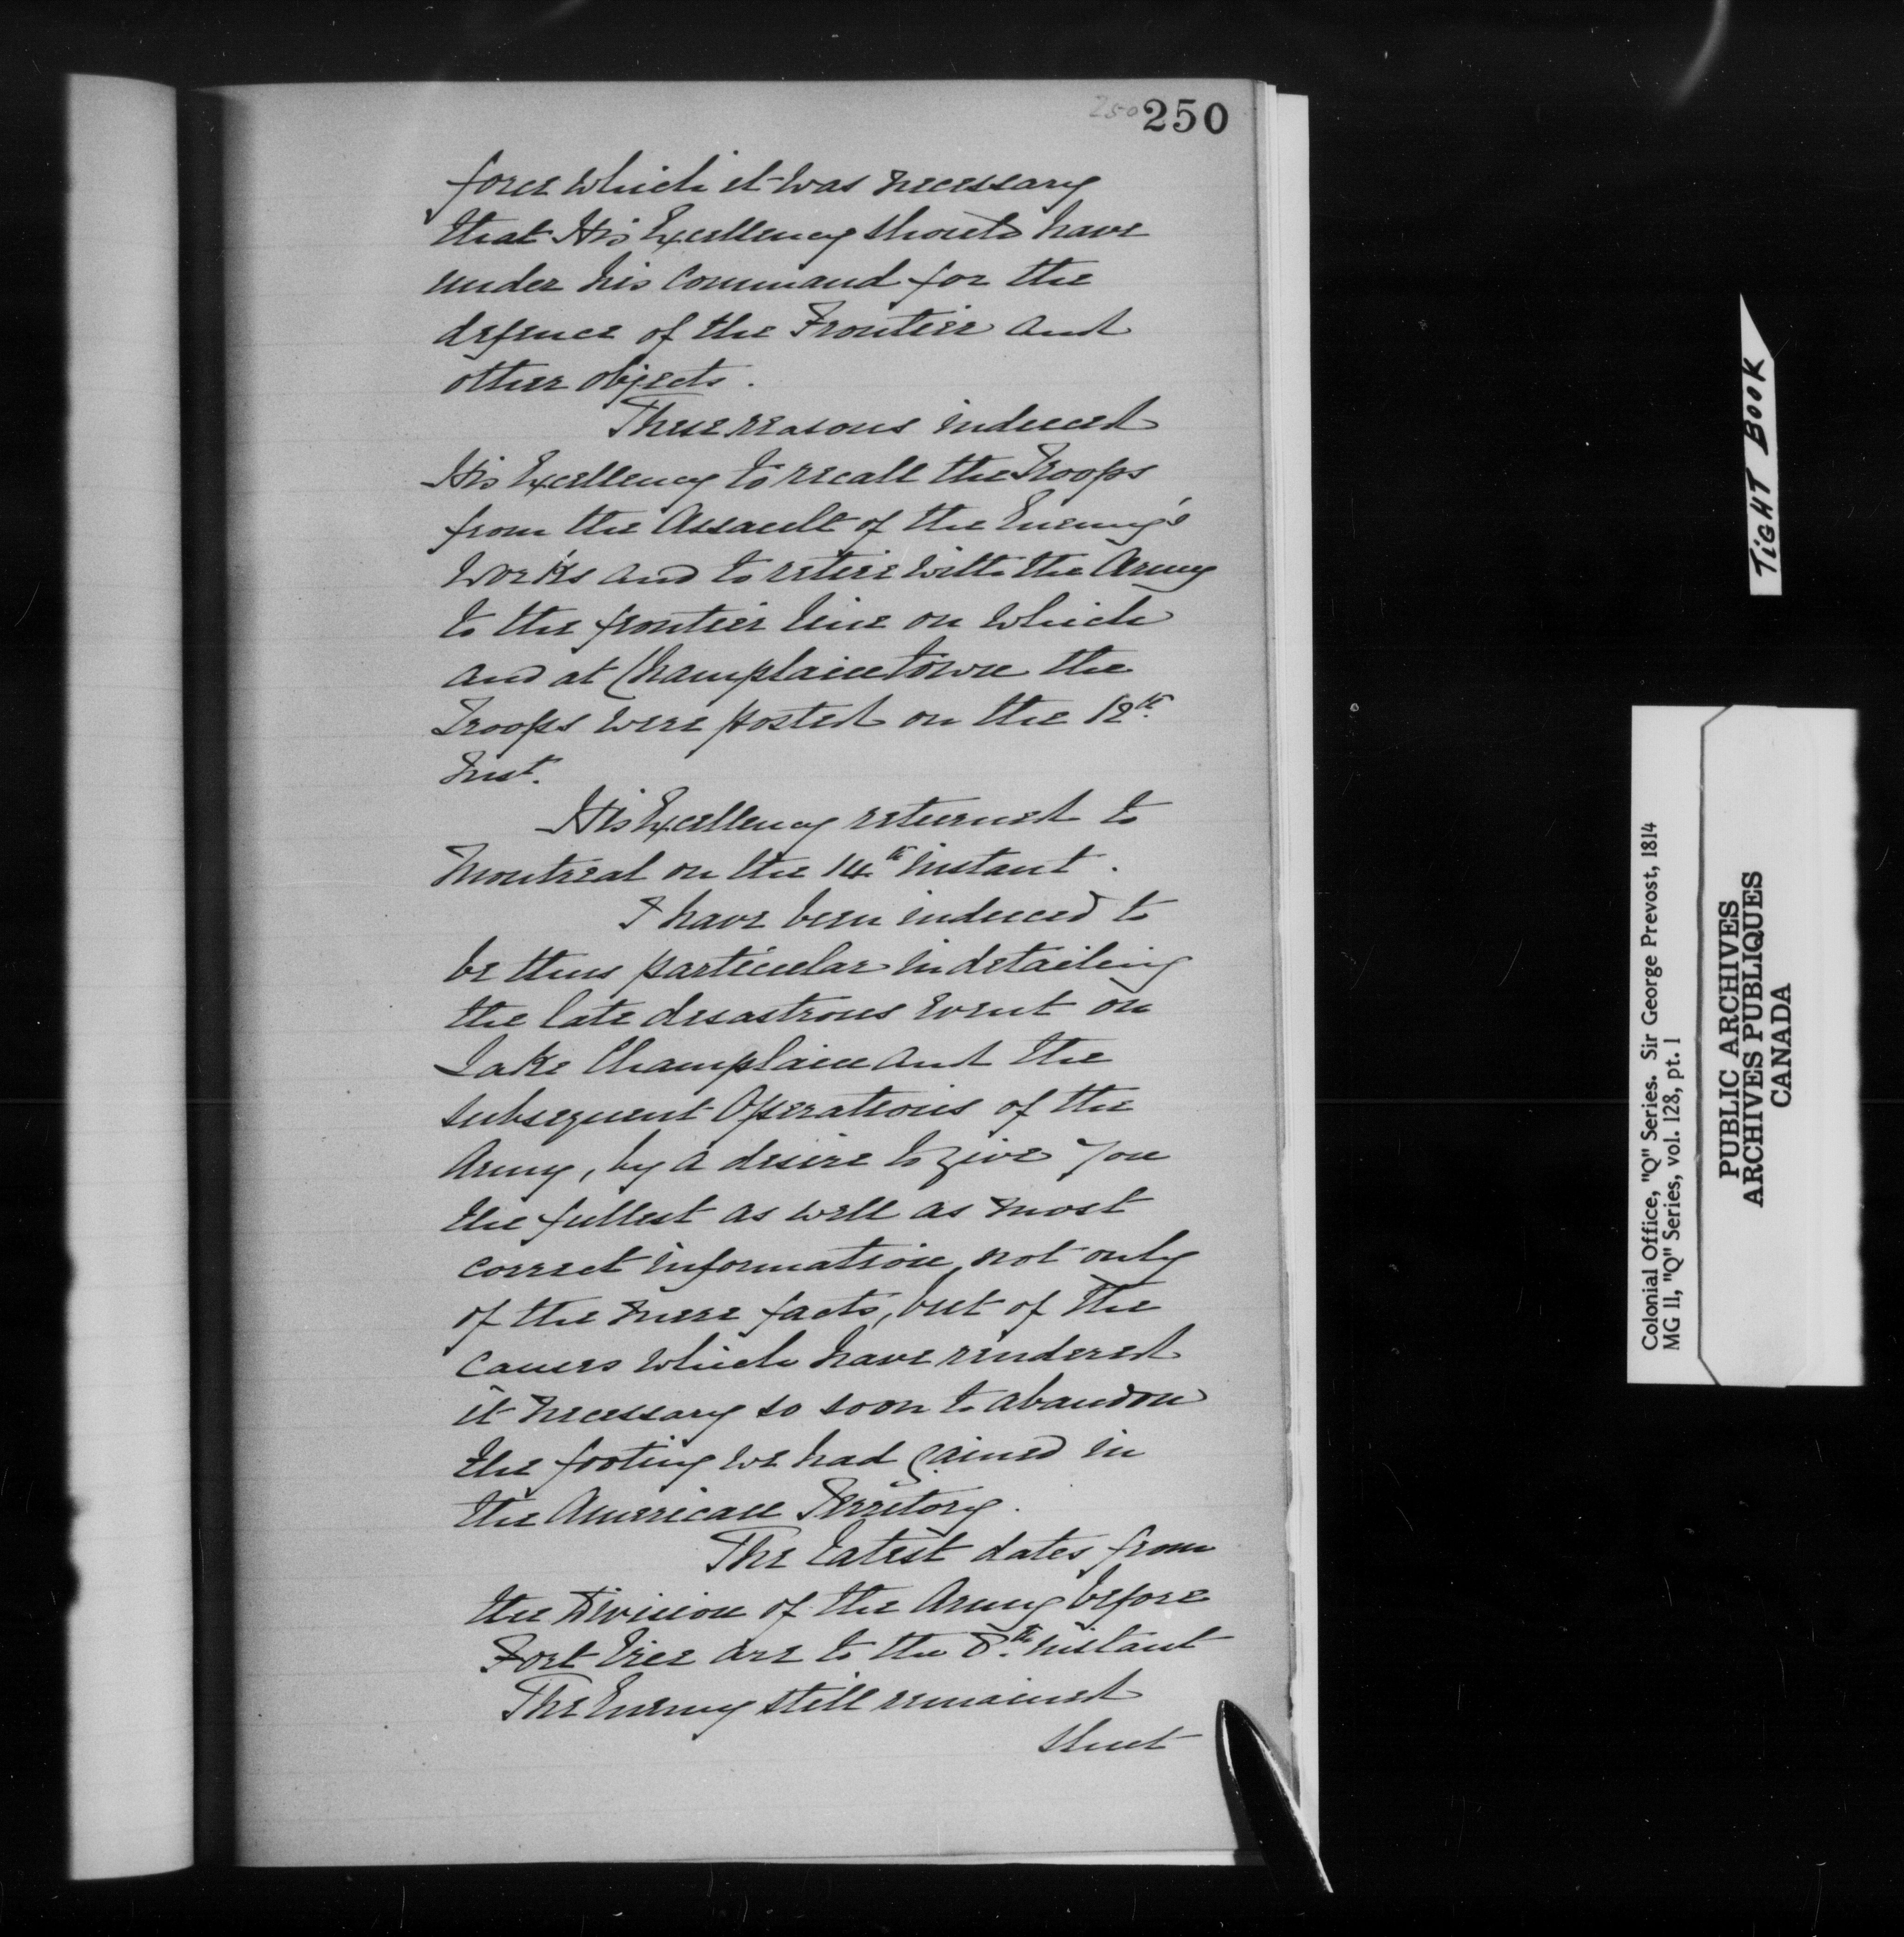 250 250
force which it was necessary
that His Excellency should have
under his Command for the
defence of the Frontier and
other objects.
These reasons induced
His Excellency to recall the Troops
from the Assault of the Enemy's
Works and to retire with the Army
to the frontier line on which
and at Champlain Town the
Troops were posted on the 12th
Inst.
His Excellency returned to
Montreal on the 14th Instant.
I have been induced to
be thus particular in detailing
the late disastrous event on
Lake Champlain and the
subsequent Operations of the
Army, by a desire to give you
the fullest as well as most
correct information, not only
of the mere facts, but of the
causes which have rendered
it necessary so soon to abandon
the footing we had gained in
the American Territory.
The latest dates from
the Division of the Army before
Fort Erie are to the 8th Instant
The Enemy still remained
shut
TIGHT BOOK
Colonial Office, "Q" Series. Sir George Prevost, 1814
MG 11, "Q" Series, vol. 128, pt. 1
PUBLIC ARCHIVES
ARCHIVES PUBLIQUES
CANADA